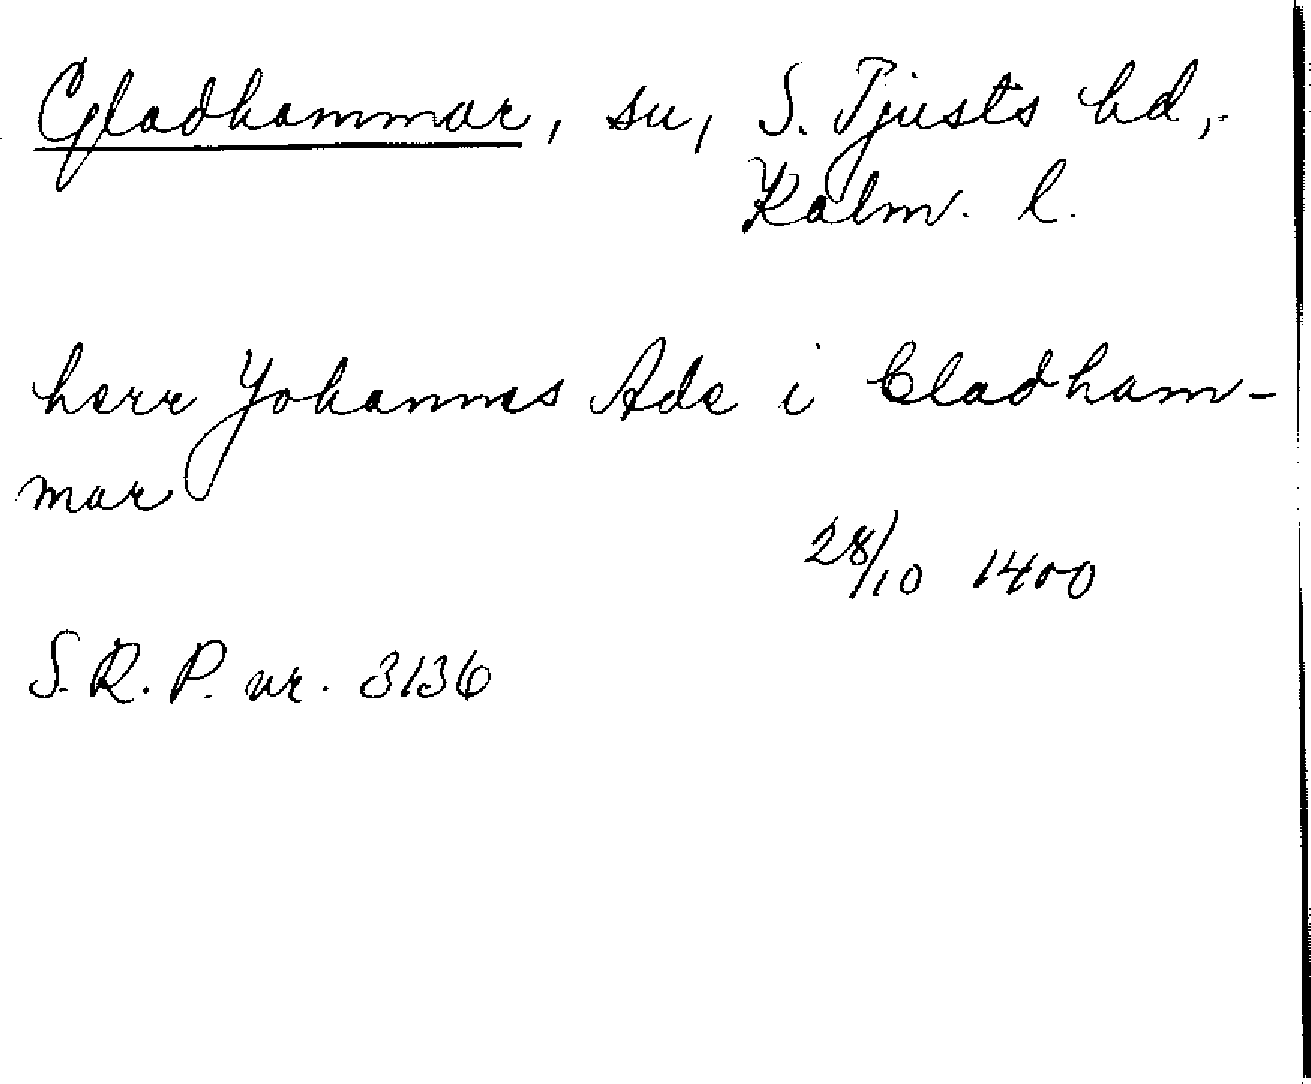 Gladhammar, sn, S. Tjusts hd,
Kalm. l.
herr Johannes Ade i Cladham-
mar
28/10 1400
S.R.P. nr. 3136